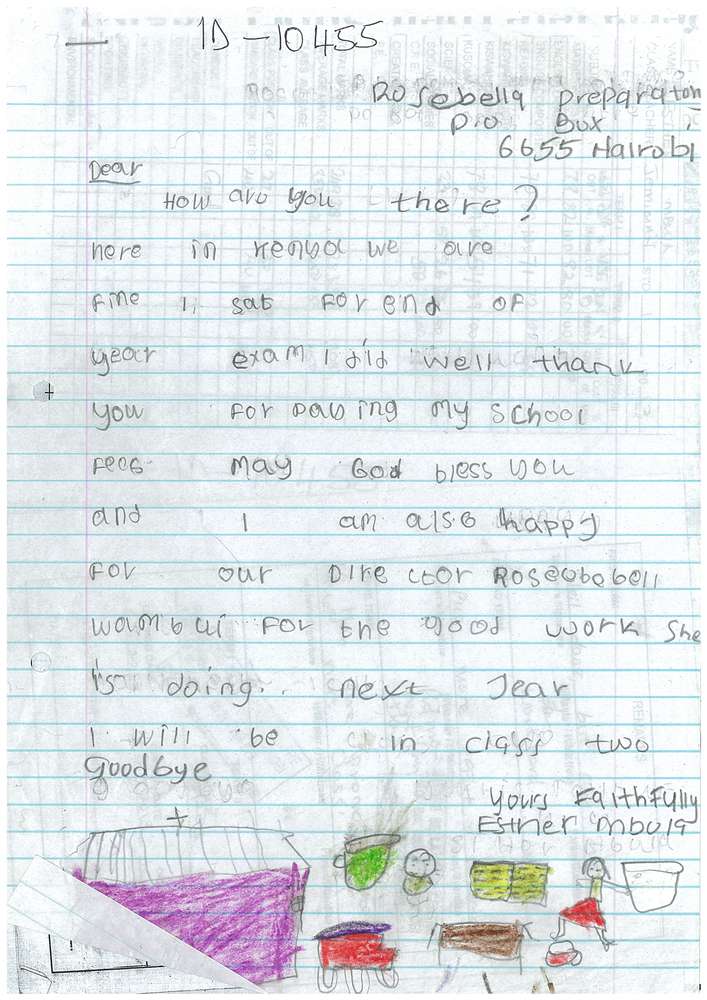 1D-10455
Rosebella preparaton
P.o Box
6655 Nairobi
Dear
How are you there?
here in kenya we are
Fine I, sat For end of
year exam I did well thank
you For paying my school
Fees may God bless you
and I am also happy
For our Director Roseububell
wambui For the good work she
is doing.. next Jear
I will be in class two
Goodbye
Yours Faithfully
Esther mbula